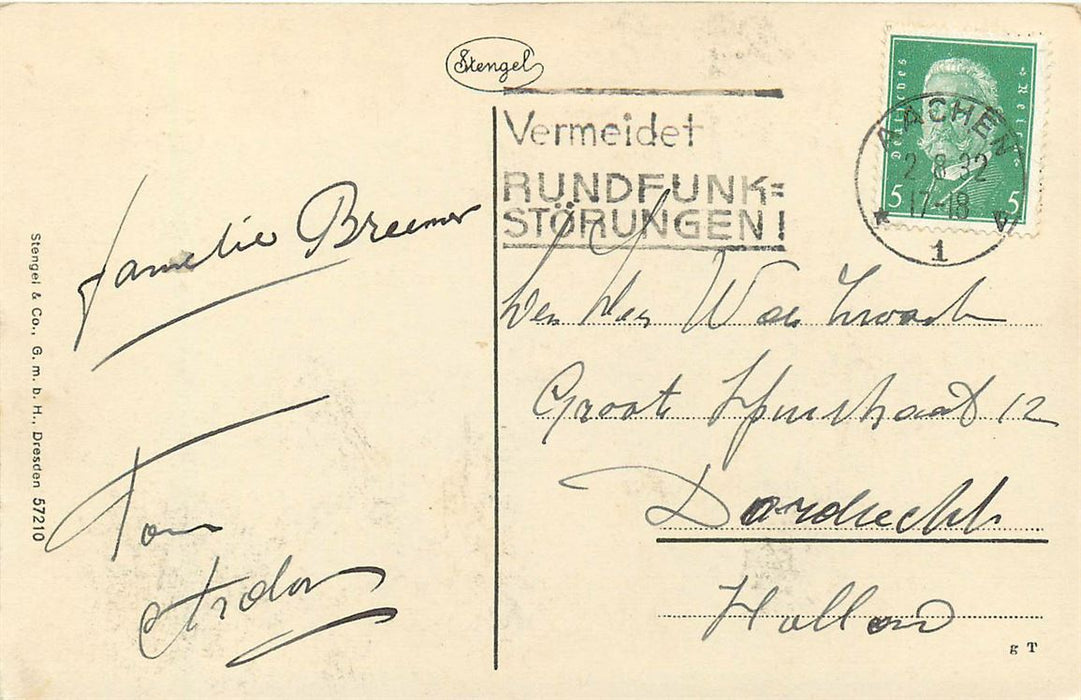 Stengel
Vermeidet
RUNDFUNK=
STÖRUNGEN!
Deutsches Reich
5 5
AACHEN
2.8.32
17-18
* 1 w
Familie Breemer
Tom
Stengel & Co., G. m. b. H., Dresden 57210
Den Heer W
Groote 12
Dordrecht
Holland
g T